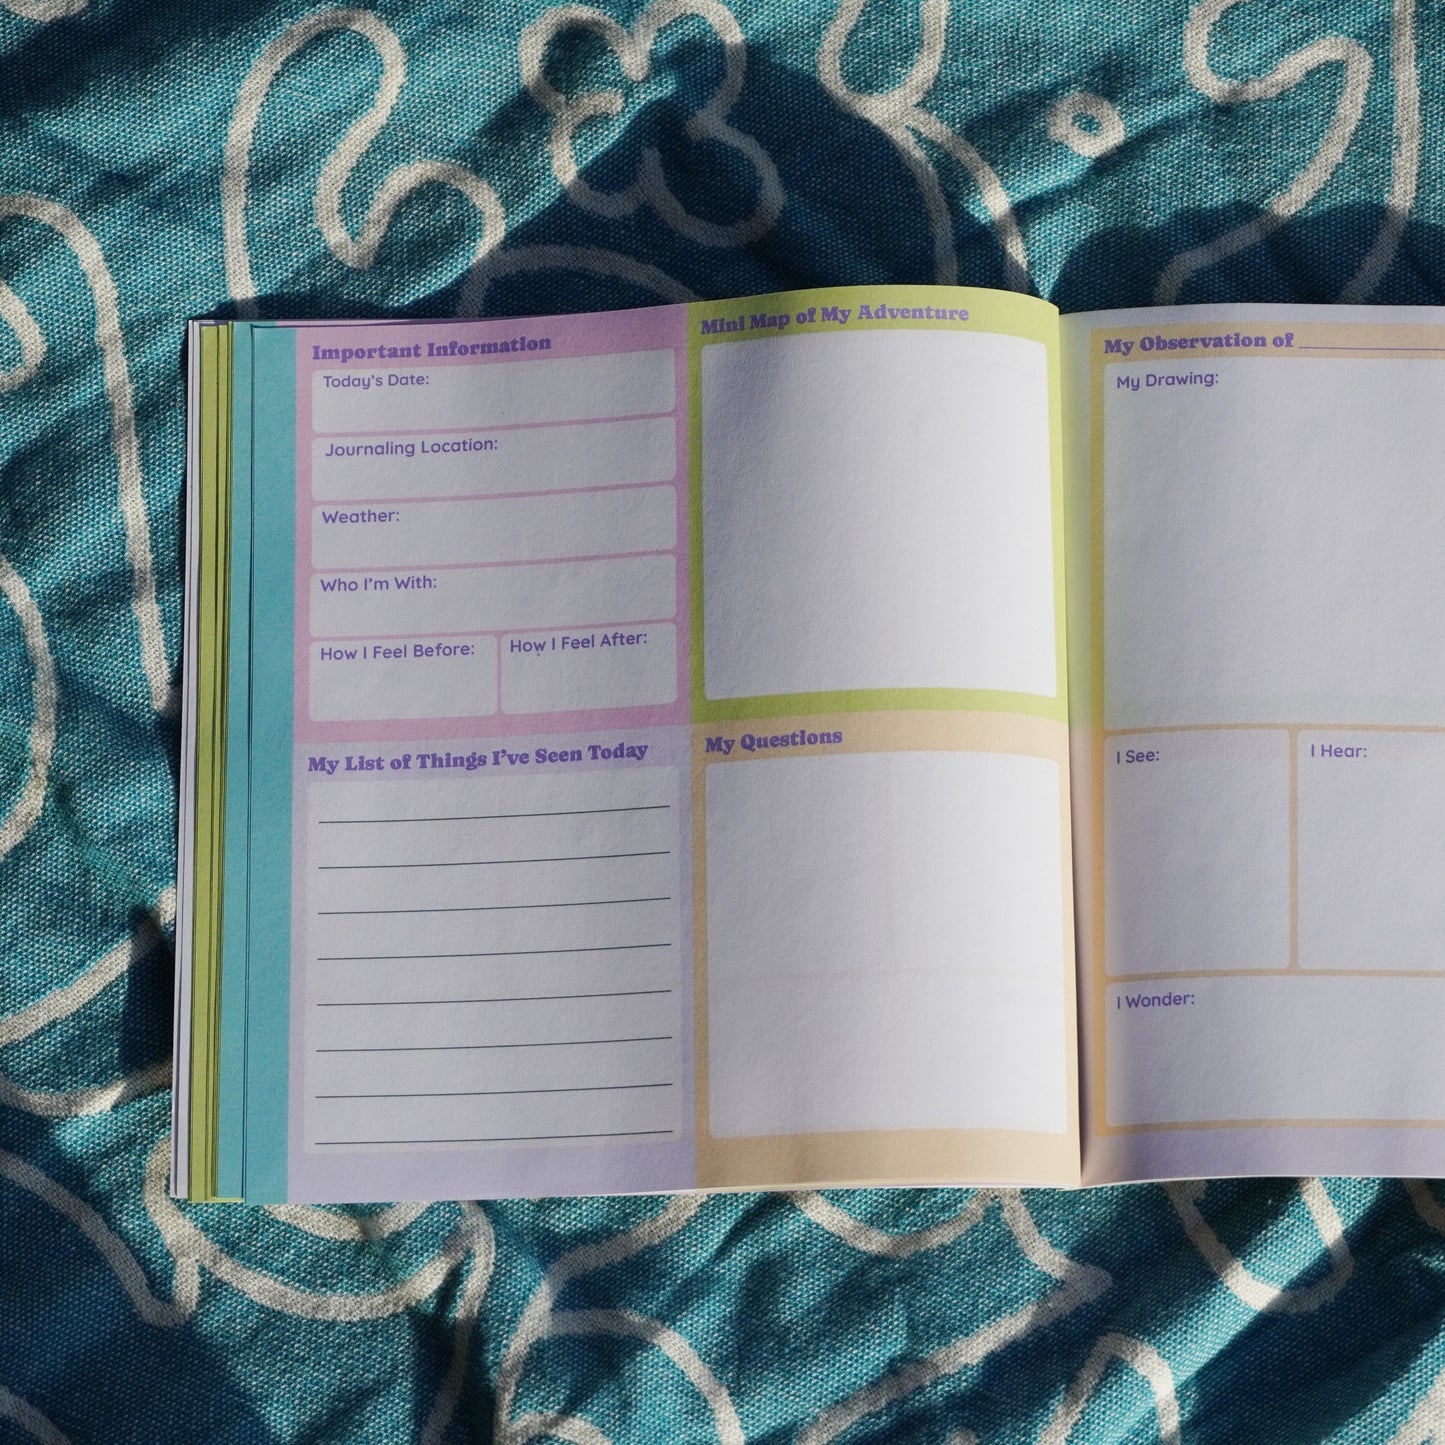 Important Information
Today's Date:
Journaling Location:
Weather:
Who I'm With:
How I Feel Before:
How I Feel After:
My List of Things I've Seen Today
Mini Map of My Adventure
My Questions
My Observation of
My Drawing:
I See:
I Hear:
I Wonder: